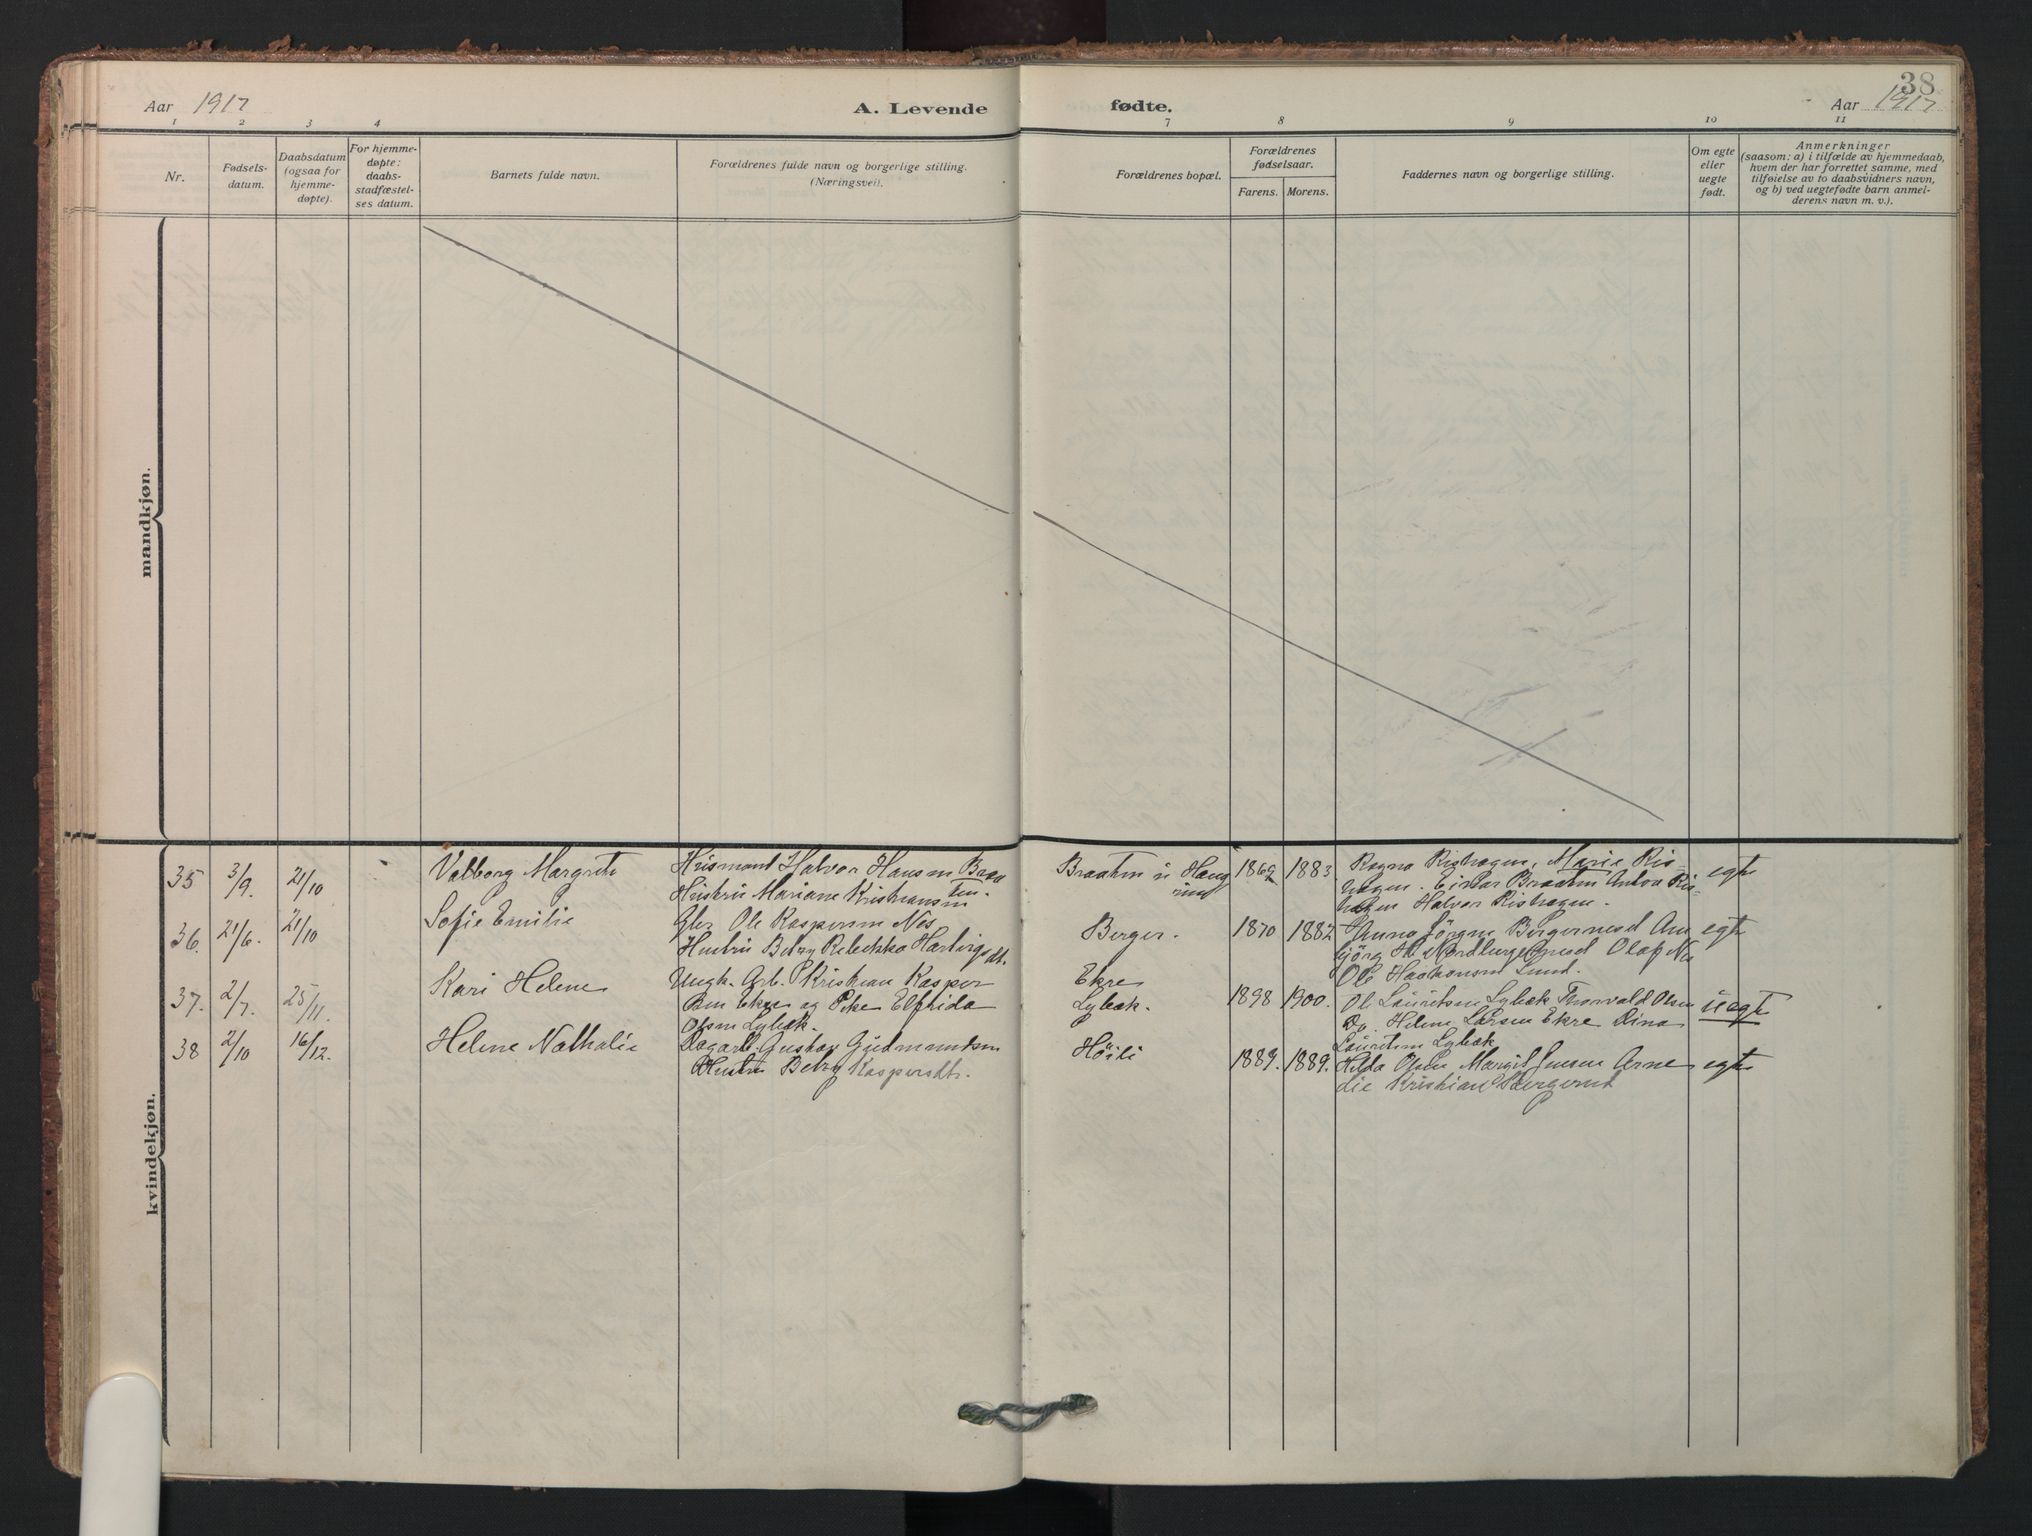 38
Aar 1917 A. Levende fødte. Aar 1917
1 2 3 4 7 8 9 10 11
Nr.
Fødsels-
datum.
Daabsdatum
(ogsaa for
hjemme-
døpte).
For hjemme-
døpte:
daabs-
stadfæstel-
ses datum.
Barnets fulde navn.
Forældrenes fulde navn og borgerlige stilling.
(Næringsvei).
Forældrenes bopæl.
Forældrenes
fødselsaar.
Farens. Morens.
Faddernes navn og borgerlige stilling.
Om egte
eller
uegte
født.
Anmerkninger
(saasom: a) i tilfælde av hjemmedaab,
hvem der har forrettet samme, med
tilføielse av to daabsvidners navn,
og b) ved uegtefødte barn anmel-
derens navn m. v.).
mandkjøn.
kvindekjøn.
35 3/9. 21/10 Valborg Margrete
Husmand Halvor Hansen Braa
ten.
Hustru Mariane Kristiansen
Braaten u Haug
1883
Ragna Rishagen, Marie Ris-
hagen. Einar Braaten Anton Ris-
hagen Halvor Rishagen.
egte
36. 21/6. 21/10 Sofie Emilie
Ole Kaspersen Næs
Hustru Betzy Rebekka Hartvigsdt.
Berger.
1870 1882
Anna Jörgine Bergersund
Olaf Næs
Ole Haakonsen Lund.
egte
37. 2/7. 25/11. Kari Helene
Ungk. Arb. Kristian Kasper
sen Ekre og Pike Elfrida
Olsen Lybæk.
Ekre
Lybæk.
1898 1900.
Ole Lauritsen Lybæk Thorvald Olsen
Do. Helene Larsen Ekre Dina
Lauritsen Lybæk
uegte
38 2/10 16/12. Helene Nathalie
Dagarb. Gustav Gudmundsen
Hustru Betzy Kaspersdtr.
Höili
1889. 1889.
Hilda Olsen Margit Jensen Arne
Kristian Bergersund
egte